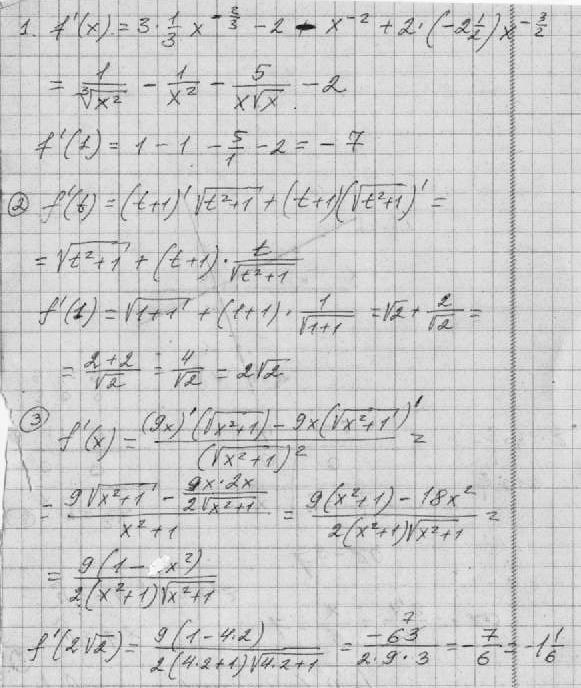 1. f'(x) = 3·1/3 x^(-2/3) - 2 - x^(-2) + 2·(-2 1/2)x^(-3/2)
= 1/∛(x²) - 1/x² - 5/(x√x) - 2
f'(1) = 1 - 1 - 5/1 - 2 = -7
② f'(t) = (t+1)'√(t²+1) + (t+1)(√(t²+1))' =
= √(t²+1) + (t+1)· t/√(t²+1)
f'(1) = √(1+1) + (1+1)· 1/√(1+1) = √2 + 2/√2 =
= (2+2)/√2 = 4/√2 = 2√2
③ f'(x) = ((9x)'(√(x²+1)) - 9x(√(x²+1))')/(√(x²+1))² =
= (9√(x²+1) - (9x·2x)/(2√(x²+1)))/(x²+1) = (9(x²+1) - 18x²)/(2(x²+1)√(x²+1)) =
= 9(1 - x²)/(2(x²+1)√(x²+1))
f'(2√2) = 9(1-4·2)/(2(4·2+1)√(4·2+1)) = -63/(2·9·3) 7 = -7/6 = -1 1/6